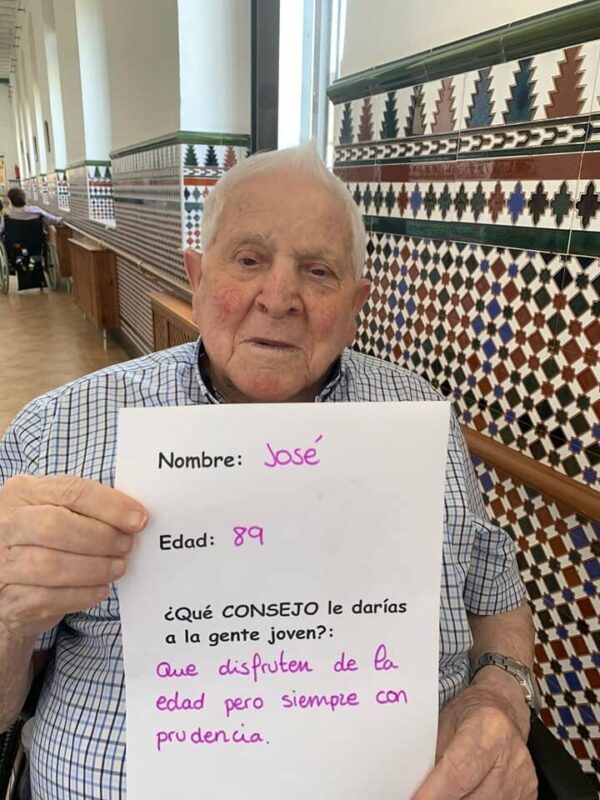 Nombre: José
Edad: 89
¿Qué CONSEJO le darías
a la gente joven?:
Que disfruten de la
edad pero siempre con
prudencia.